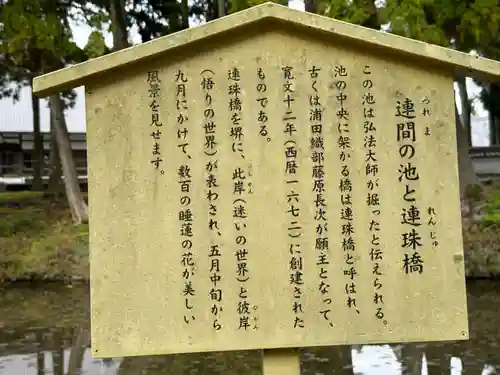 連間の池と連珠橋
ふれま
れんじゅ
この池は弘法大師が掘ったと伝えられる。
池の中央に架かる橋は連珠橋と呼ばれ、
古くは浦田織部藤原長次が願主となって、
寛文十二年（西暦一六七二）に創建された
ものである。
連珠橋を堺に、此岸（迷いの世界）と彼岸
しがん
ひがん
（悟りの世界）が表わされ、五月中旬から
九月にかけて、数百の睡蓮の花が美しい
風景を見せます。